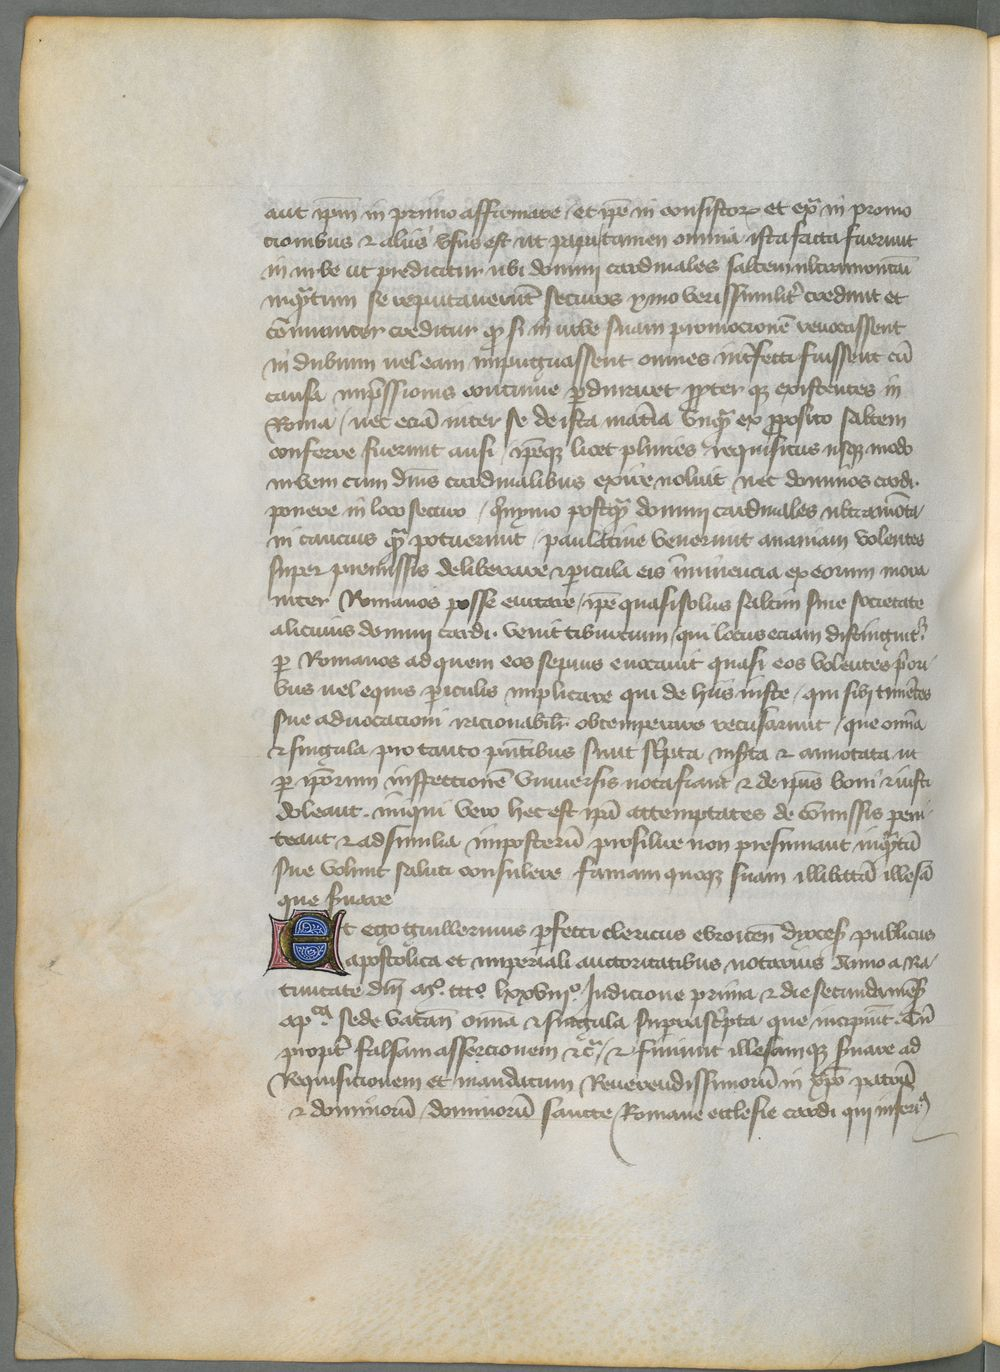 aut ip̄m in primo affirmare / et ip̄e in consistor. et ex̄ in promo
cionibus ⁊ aliis vsus est ut papa / tamen omnia ista facta fuerunt
in urbe ut predicitur ubi domini cardinales saltem ultramontāi
nūq̄ tum se reputauerūt securos ymo verissimilit̄ credunt et
cōmuniter creditur qꝫ si in urbe suam promocionē reuocassent
in dubium uel eam impugnassent omnes int̄fecti fuissent cū
causa imp̄ssionis continue ꝑduraret ꝓpter qꝫ existentes in
Roma / nec eciā inter se de ista mat̄ia unq̄ ex ꝓposito saltem
conferre fuerunt ausi / ip̄eqꝫ licet pluries requisitus usqꝫ modo
urbem cum dn̄is cardinalibus exire noluit nec dominos cardi.
ponere in loco securo / Quinymo postq̄ domini cardinales ultramōta
in caucius q̄ potuerunt / paulatine venerunt ananiam volentes
super premissis deliberare ⁊ ꝑicula eis īminencia ex eorum mora
inter Romanos posse euitare / ip̄e quasi solus saltim sine societate
alicuius domini cardi. venit tiburtum / qui locus eciam distinguit̄
ꝑ Romanos ad quem eos sepius euocauit quasi eos volentes p̄ori
bus uel equis ꝑiculis implicare qui de hiis iuste / qui sibi timētes
sue aduocacioni racionabilit̄ obtemperare recusarunt / que om̄ia
⁊ singula pro tanto p̄ntibus sunt sc̄pta ins̄ta ⁊ annotata ut
ꝑ ip̄orum inspectionē vniuersis nota fiant ⁊ de ip̄is boni ⁊ iusti
doleant . iniqui vero hec est ip̄a attemptates de cōmissis peni
teant ⁊ ad similia imposterū prosilire non presumant inq̄tū
sue volunt saluti consulere famam quoqꝫ suam illibatā illesā
que s̄uare
Et ego Guillermus ꝑfecti clericus ebroicen̄ dyoces̄ publicus
apostolica et imperiali auctoritatibus notarius Anno a Na
tiuitate dn̄i mͦ. cccͦ. lxxviiiͦ. Indicione prima ⁊ die secunda mēs̄
apͣ. sede vacan̄ om̄ia ⁊ singula suprasc̄pta que incipiūt. Cū
propt̄ falsam assercionem ⁊c̄ / ⁊ finiunt illesamqꝫ s̄uare ad
Requisicionem et mandatum Reuerendissimorū in xp̄o patrū
⁊ dominorū / dominorū sancte Romane ecclesie cardi qui infer̄